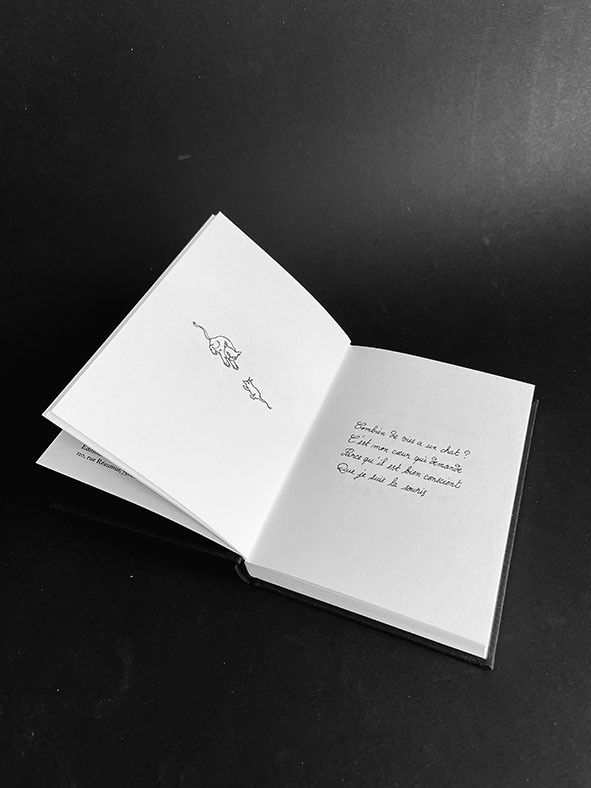 110, rue Réaumur, 
Combien de vies a un chat ?
C'est mon cœur qui demande
Parce qu'il est bien conscient
Que je suis la souris